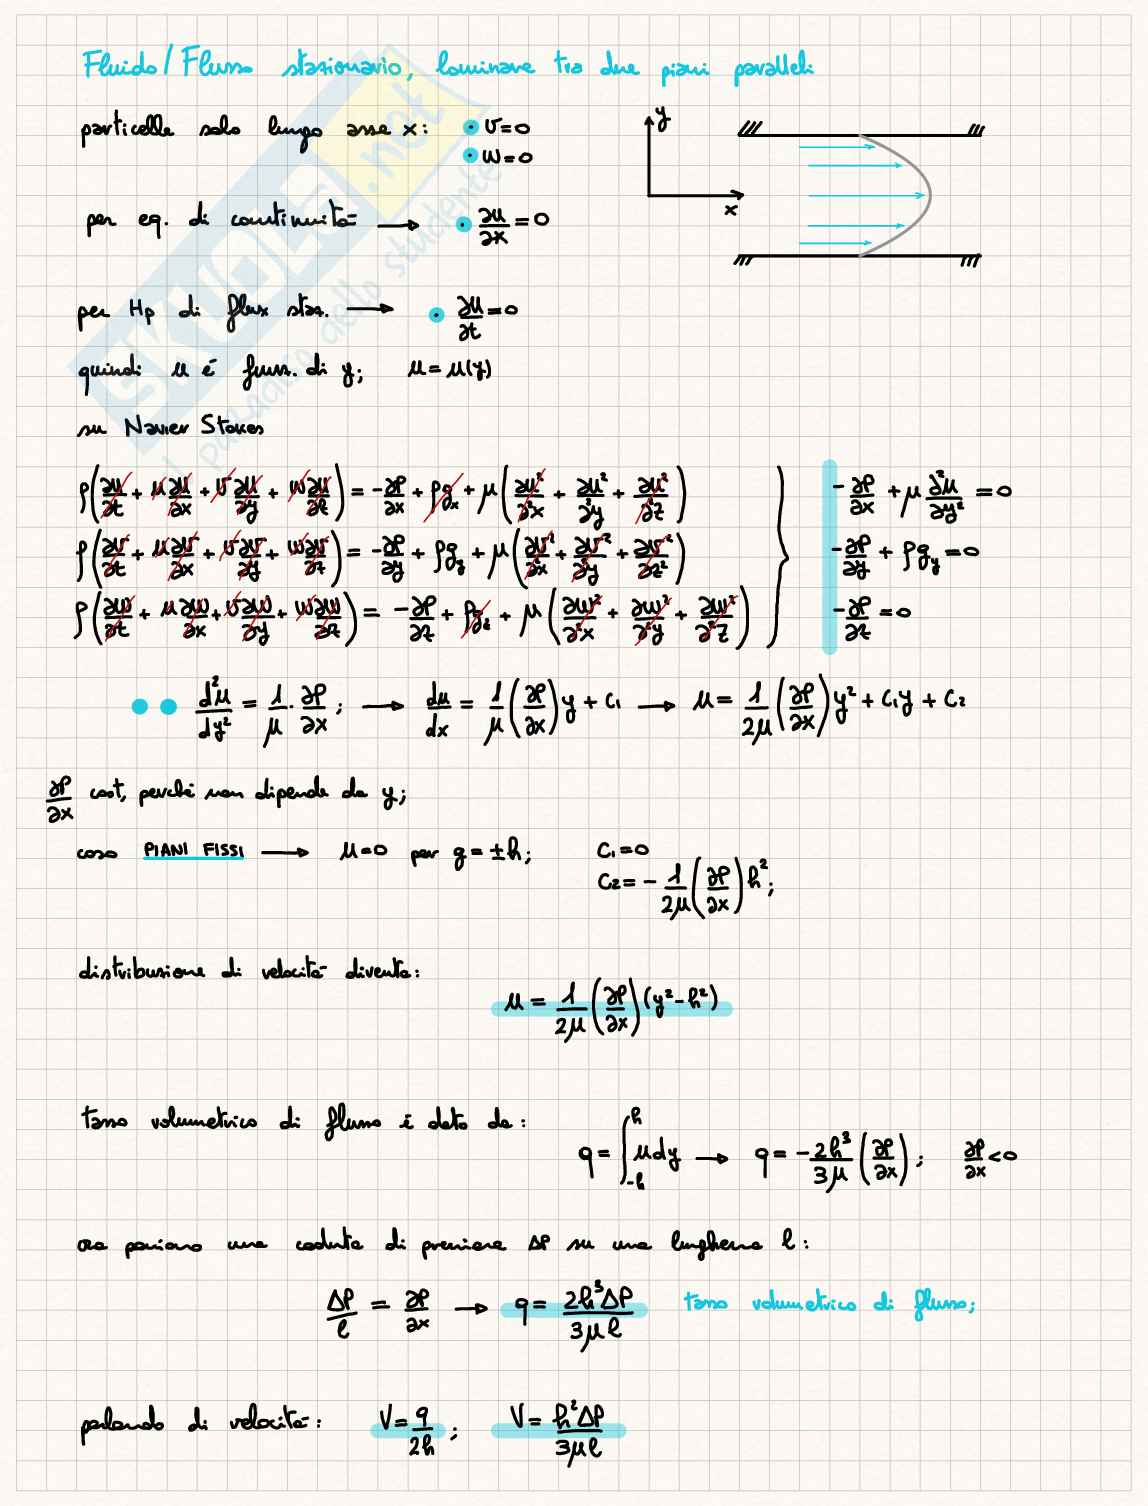 Fluido/Flusso stazionario, laminare tra due piani paralleli
particelle solo lungo asse x: • v=0
• w=0
y
x
per eq. di continuità → • ∂u/∂x = 0
per Hp di flux staz. → • ∂u/∂t = 0
quindi u è funz. di y; u=u(y)
su Navier Stokes
ρ(∂u/∂t + u∂u/∂x + v∂u/∂y + w∂u/∂z) = -∂P/∂x + ρgₓ + μ(∂u²/∂²x + ∂u²/∂²y + ∂u²/∂²z) } -∂P/∂x + μ ∂²u/∂y² = 0
ρ(∂v/∂t + u∂v/∂x + v∂v/∂y + w∂v/∂z) = -∂P/∂y + ρg_y + μ(∂v²/∂²x + ∂v²/∂²y + ∂v²/∂z²) -∂P/∂y + ρg_y = 0
ρ(∂w/∂t + u∂w/∂x + v∂w/∂y + w∂w/∂z) = -∂P/∂z + ρg_z + μ(∂w²/∂²x + ∂w²/∂²y + ∂w²/∂²z) -∂P/∂z = 0
d²u/dy² = 1/μ · ∂P/∂x ; → du/dx = 1/μ (∂P/∂x) y + C₁ → u = 1/2μ (∂P/∂x) y² + C₁y + C₂
∂P/∂x cost, perché non dipende da y;
caso PIANI FISSI → u=0 per y = ±h; C₁=0
C₂ = - 1/2μ (∂P/∂x) h²;
distribuzione di velocità diventa:
u = 1/2μ (∂P/∂x) (y²-h²)
tasso volumetrico di flusso è dato da:
q = ∫₋ₕʰ u dy → q = -2h³/3μ (∂P/∂x) ; ∂P/∂x < 0
ora poniamo una caduta di pressione ΔP su una lunghezza l:
ΔP/l = ∂P/∂x → q = 2h³ΔP/3μl tasso volumetrico di flusso;
parlando di velocità: V = q/2h ; V = h²ΔP/3μl
SKUOLA.net
il paradiso dello studente